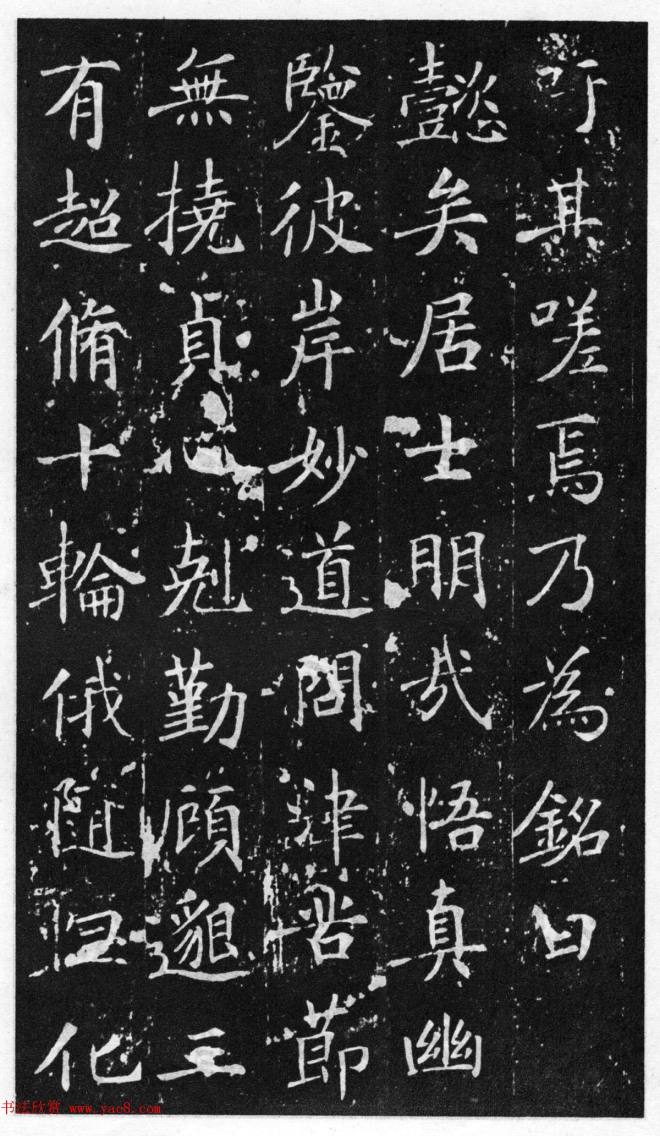 吁其嗟焉乃為銘曰
懿矣居士明哉悟真幽
鑒彼岸妙道問津苦節
無撓貞心剋勤顧邈三
有超脩十輪俄隨怛化
书法欣赏 www.yac8.com